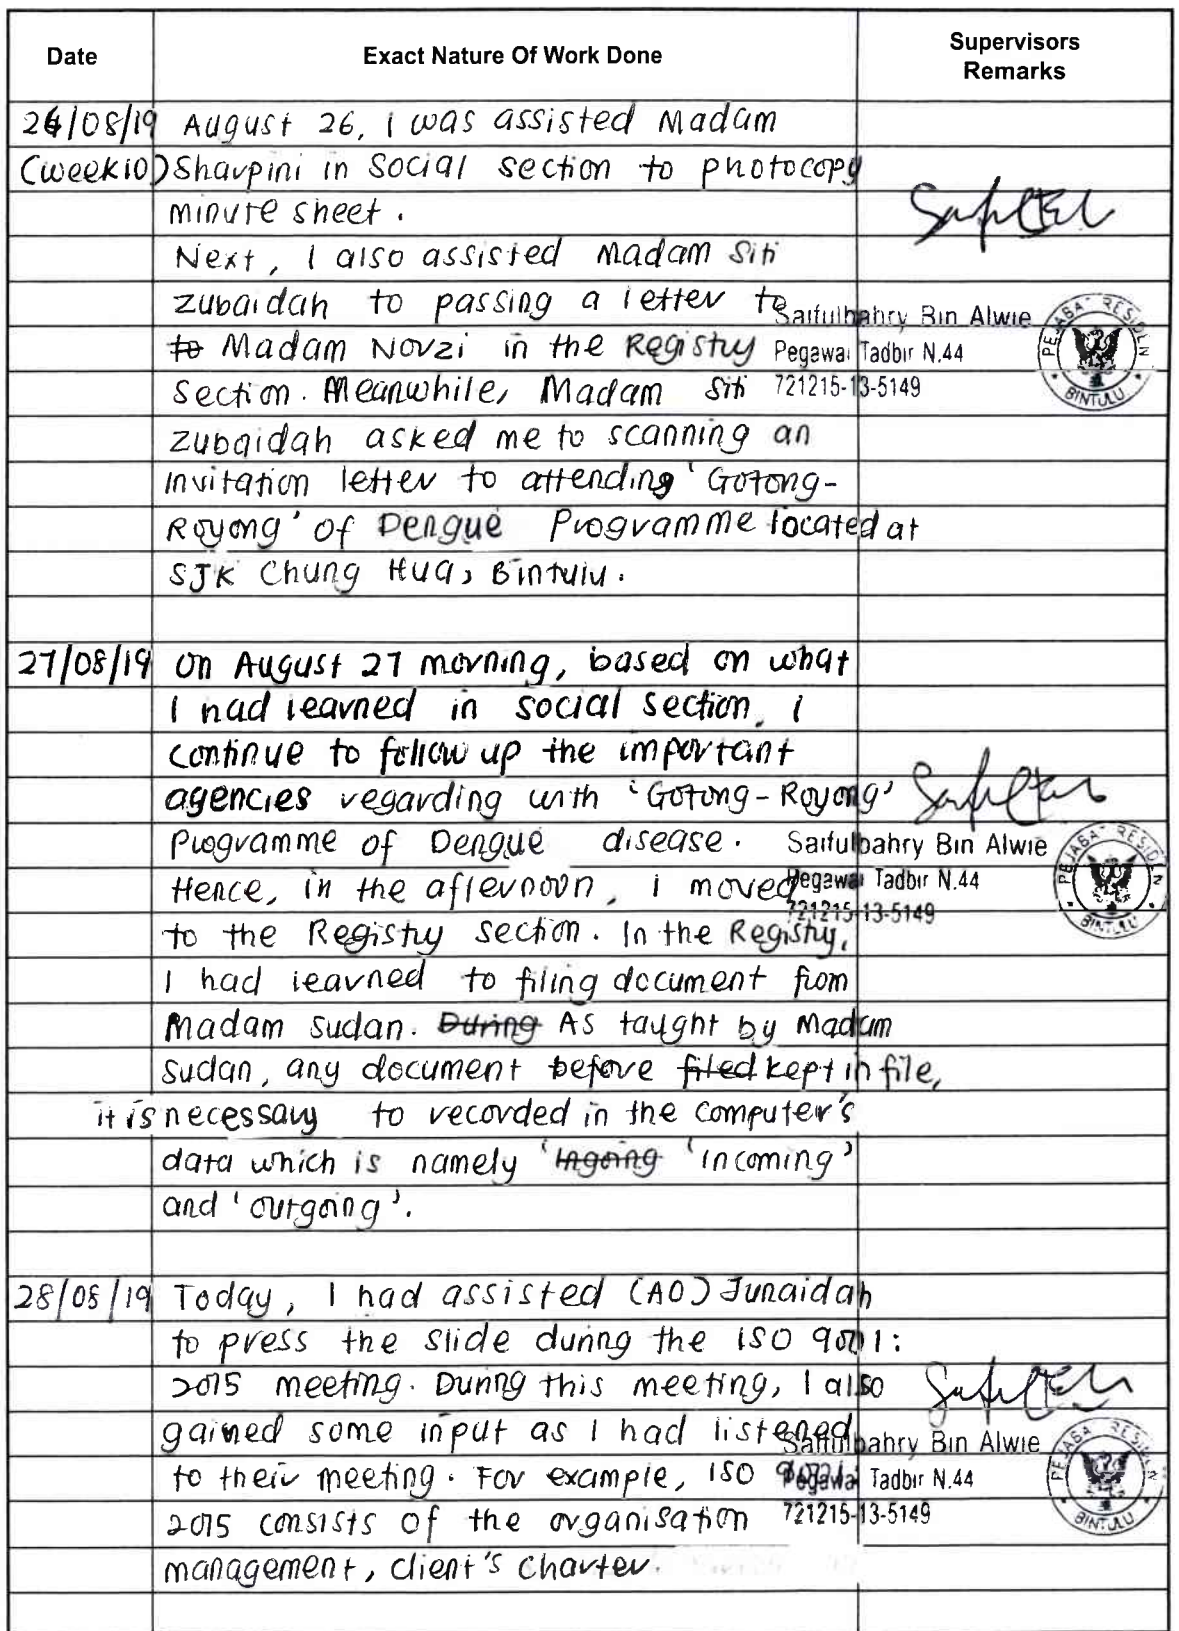 Date Exact Nature Of Work Done Supervisors Remarks
26/08/19 August 26, I was assisted Madam
(week 10) Sharpini in Social section to photocopy
minute sheet.
Next, I also assisted Madam Siti
zubaidah to passing a letter to
to Madam Novzi in the Registry
section. Meanwhile, Madam Siti
zubaidah asked me to scanning an
invitation letter to attending 'Gotong-
Royong' of Dengue Programme located at
SJK Chung Hua, Bintulu.
Saifulbahry Bin Alwie
Pegawai Tadbir N.44
721215-13-5149
PEJABAT RESIDEN
BINTULU
27/08/19 On August 27 morning, based on what
I had learned in social section, i
continue to follow up the important
agencies regarding with 'Gotong-Royong'
Programme of Dengue disease.
Hence, in the afternoon, i moved
to the Registry section. In the Registry,
I had learned to filing document from
Madam sudan. During As taught by Madam
sudan, any document before filed kept in file,
it is necessary to recorded in the computer's
data which is namely 'Ingoing 'incoming'
and 'outgoing'.
Saifulbahry Bin Alwie
Pegawai Tadbir N.44
721215-13-5149
PEJABAT RESIDEN
BINTULU
28/08/19 Today, I had assisted (AO) Junaidah
to press the slide during the ISO 9001:
2015 meeting. During this meeting, I also
gained some input as I had listened
to their meeting. For example, ISO 9001:
2015 consists of the organisation
management, client's charter.
Saifulbahry Bin Alwie
Pegawai Tadbir N.44
721215-13-5149
PEJABAT RESIDEN
BINTULU